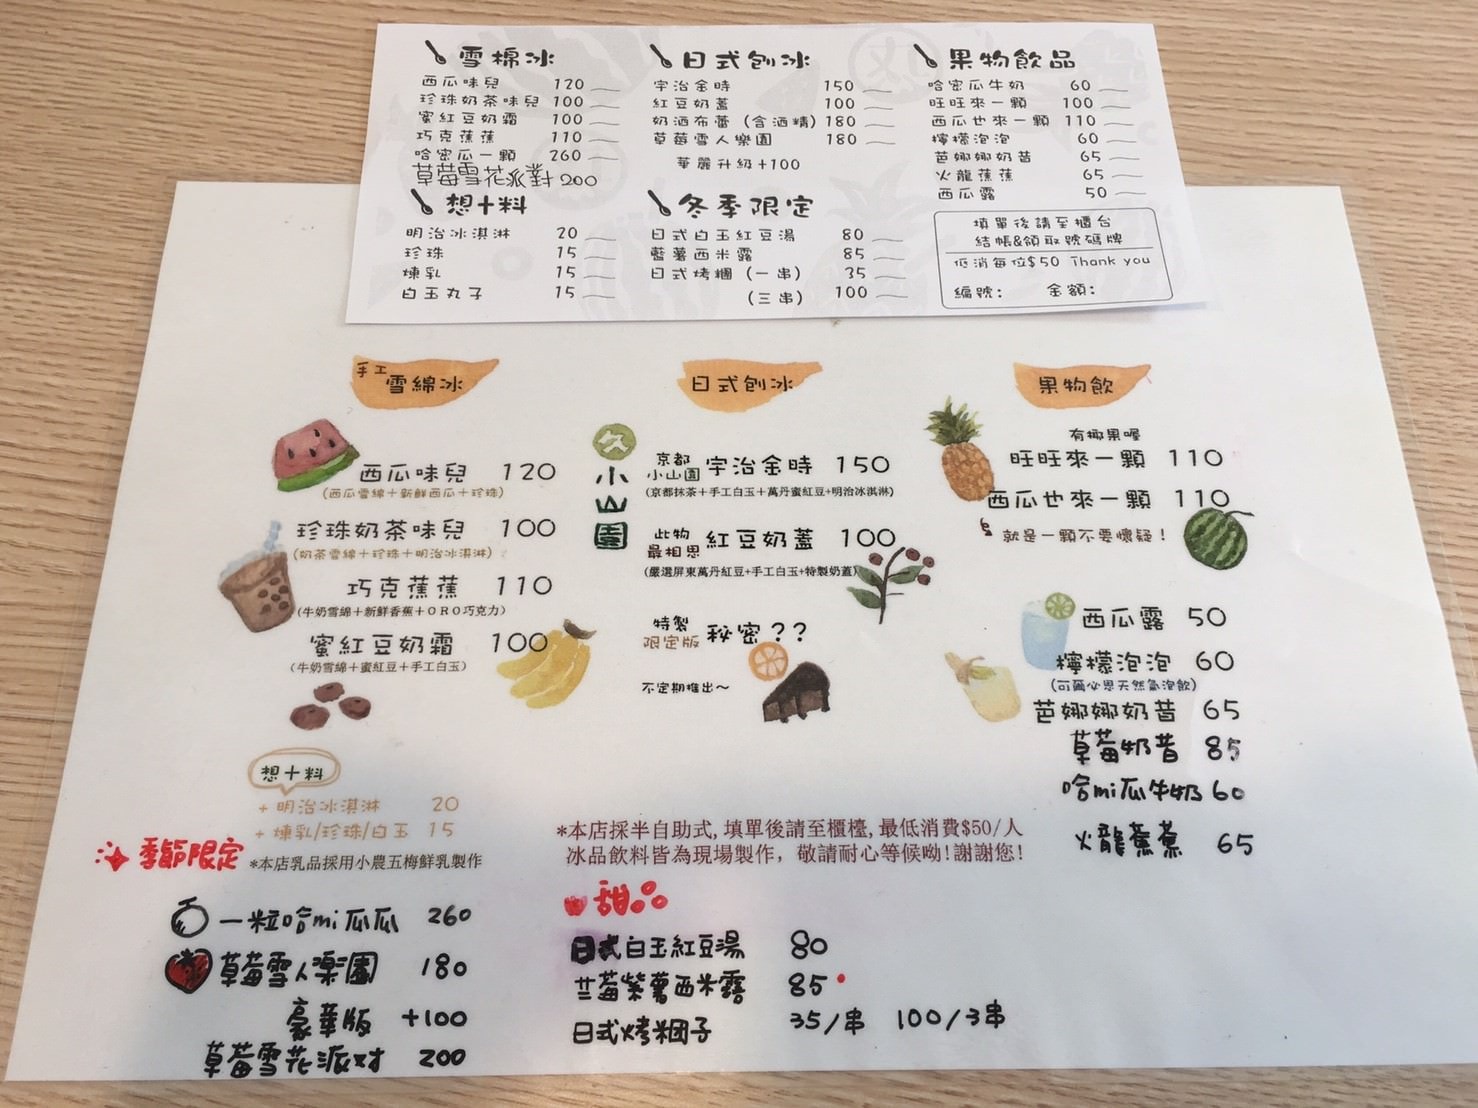 雪棉冰
西瓜味兒 120
珍珠奶茶味兒 100
蜜紅豆奶霜 100
巧克蕉蕉 110
哈密瓜一顆 260
草莓雪花派對 200
想十料
明治冰淇淋 20
珍珠 15
煉乳 15
白玉丸子 15
日式刨冰
宇治金時 150
紅豆奶蓋 100
奶酒布蕾(含酒精) 180
草莓雪人樂園 180
華麗升級+100
冬季限定
日式白玉紅豆湯 80
藍薯西米露 85
日式烤糰(一串) 35
(三串) 100
果物飲品
哈密瓜牛奶 60
旺旺來一顆 100
西瓜也來一顆 110
檸檬泡泡 60
芭娜娜奶昔 65
火龍蕉蕉 65
西瓜露 50
填單後請至櫃台
結帳&領取號碼牌
低消每位$50 Thank you
編號: 金額:
手工雪綿冰
西瓜味兒 120
(西瓜雪綿+新鮮西瓜+珍珠)
珍珠奶茶味兒 100
(奶茶雪綿+珍珠+明治冰淇淋)
巧克蕉蕉 110
(牛奶雪綿+新鮮香蕉+ORO巧克力)
蜜紅豆奶霜 100
(牛奶雪綿+蜜紅豆+手工白玉)
想十料
+明治冰淇淋 20
+煉乳/珍珠/白玉 15
*本店乳品採用小農五梅鮮乳製作
季節限定
一粒哈mi瓜瓜 260
草莓雪人樂園 180
豪華版 +100
草莓雪花派对 200
日式刨冰
久
小山園
京都
小山園 宇治金時 150
(京都抹茶+手工白玉+萬丹蜜紅豆+明治冰淇淋)
此物
最相思 紅豆奶蓋 100
(嚴選屏東萬丹紅豆+手工白玉+特製奶蓋)
特製
限定版 秘密??
不定期推出~
*本店採半自助式,填單後請至櫃檯,最低消費$50/人
冰品飲料皆為現場製作，敬請耐心等候呦!謝謝您!
甜品
日式白玉紅豆湯 80
芋莓紫薯西米露 85
日式烤糰子 35/串 100/3串
果物飲
有椰果喔
旺旺來一顆 110
西瓜也來一顆 110
就是一顆不要懷疑!
西瓜露 50
檸檬泡泡 60
(可爾必思天然氣泡飲)
芭娜娜奶昔 65
草莓奶昔 85
哈mi瓜牛奶 60
火龍蕉蕉 65